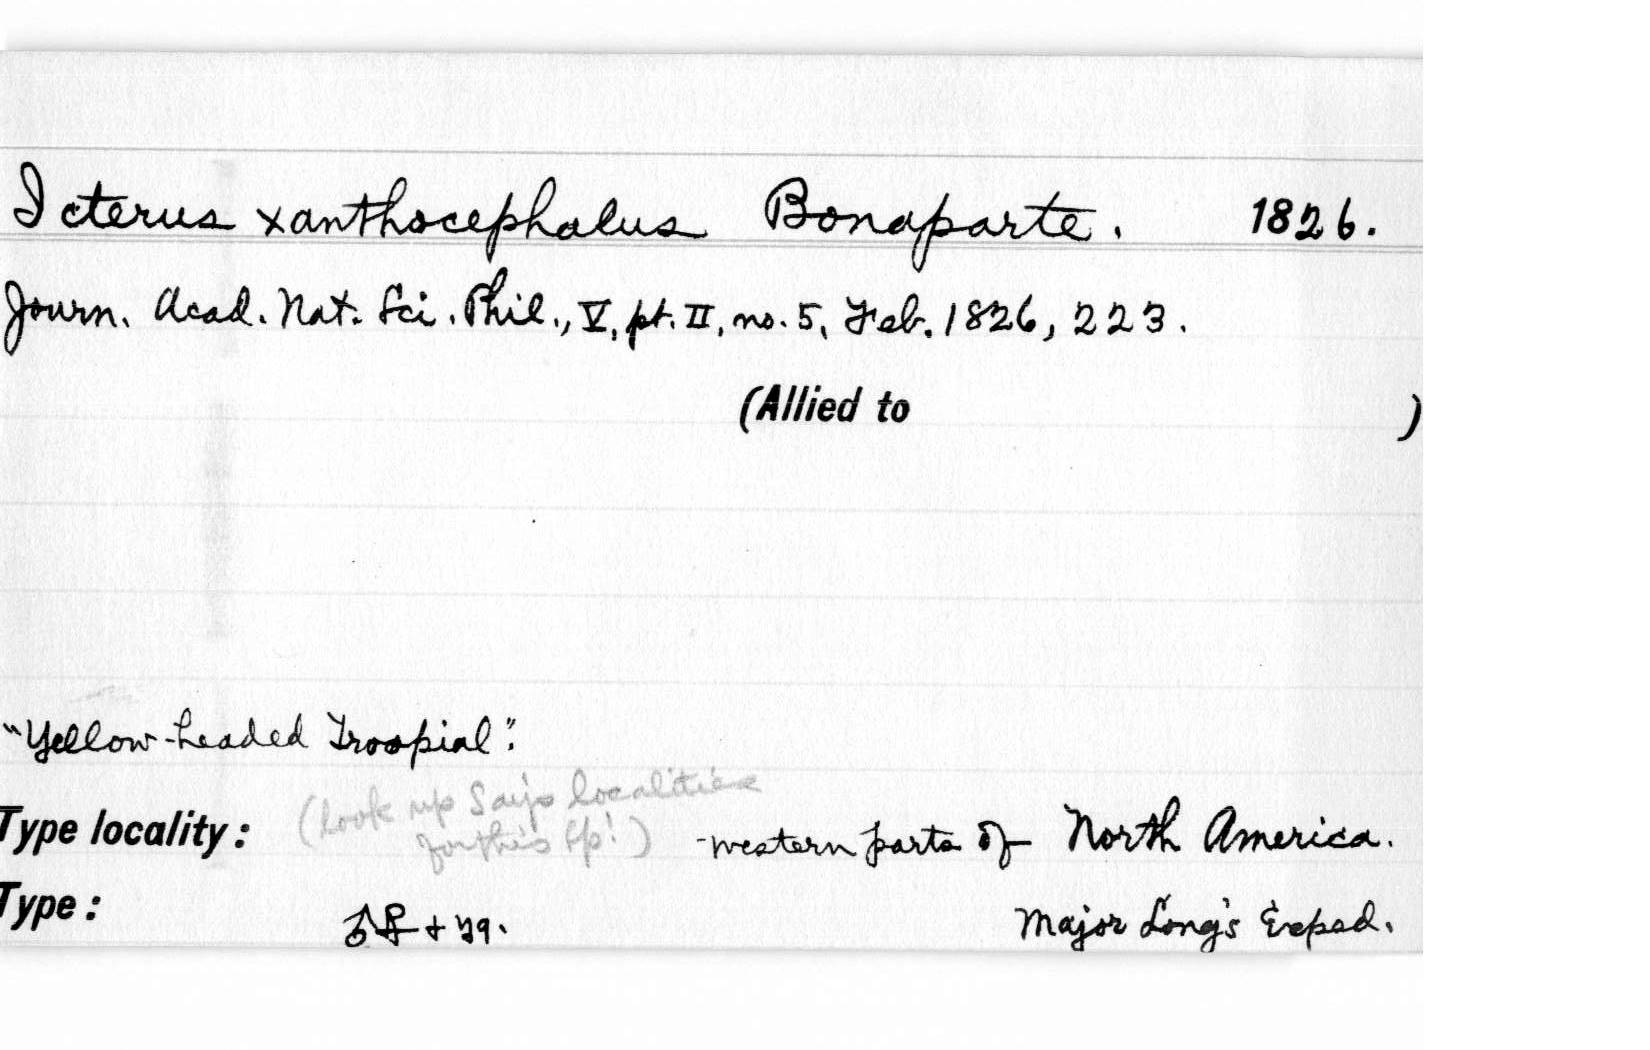 Icterus xanthocephalus Bonaparte. 1826.
Journ. Acad. Nat. Sci. Phil., V, pt. II, no. 5, Feb. 1826, 223.
(Allied to )
"Yellow-headed Troopial".
(look up Say's localities
for this sp!)
Type locality: western parts of North America.
Type: ♂♀ + yg. Major Long's Exped.